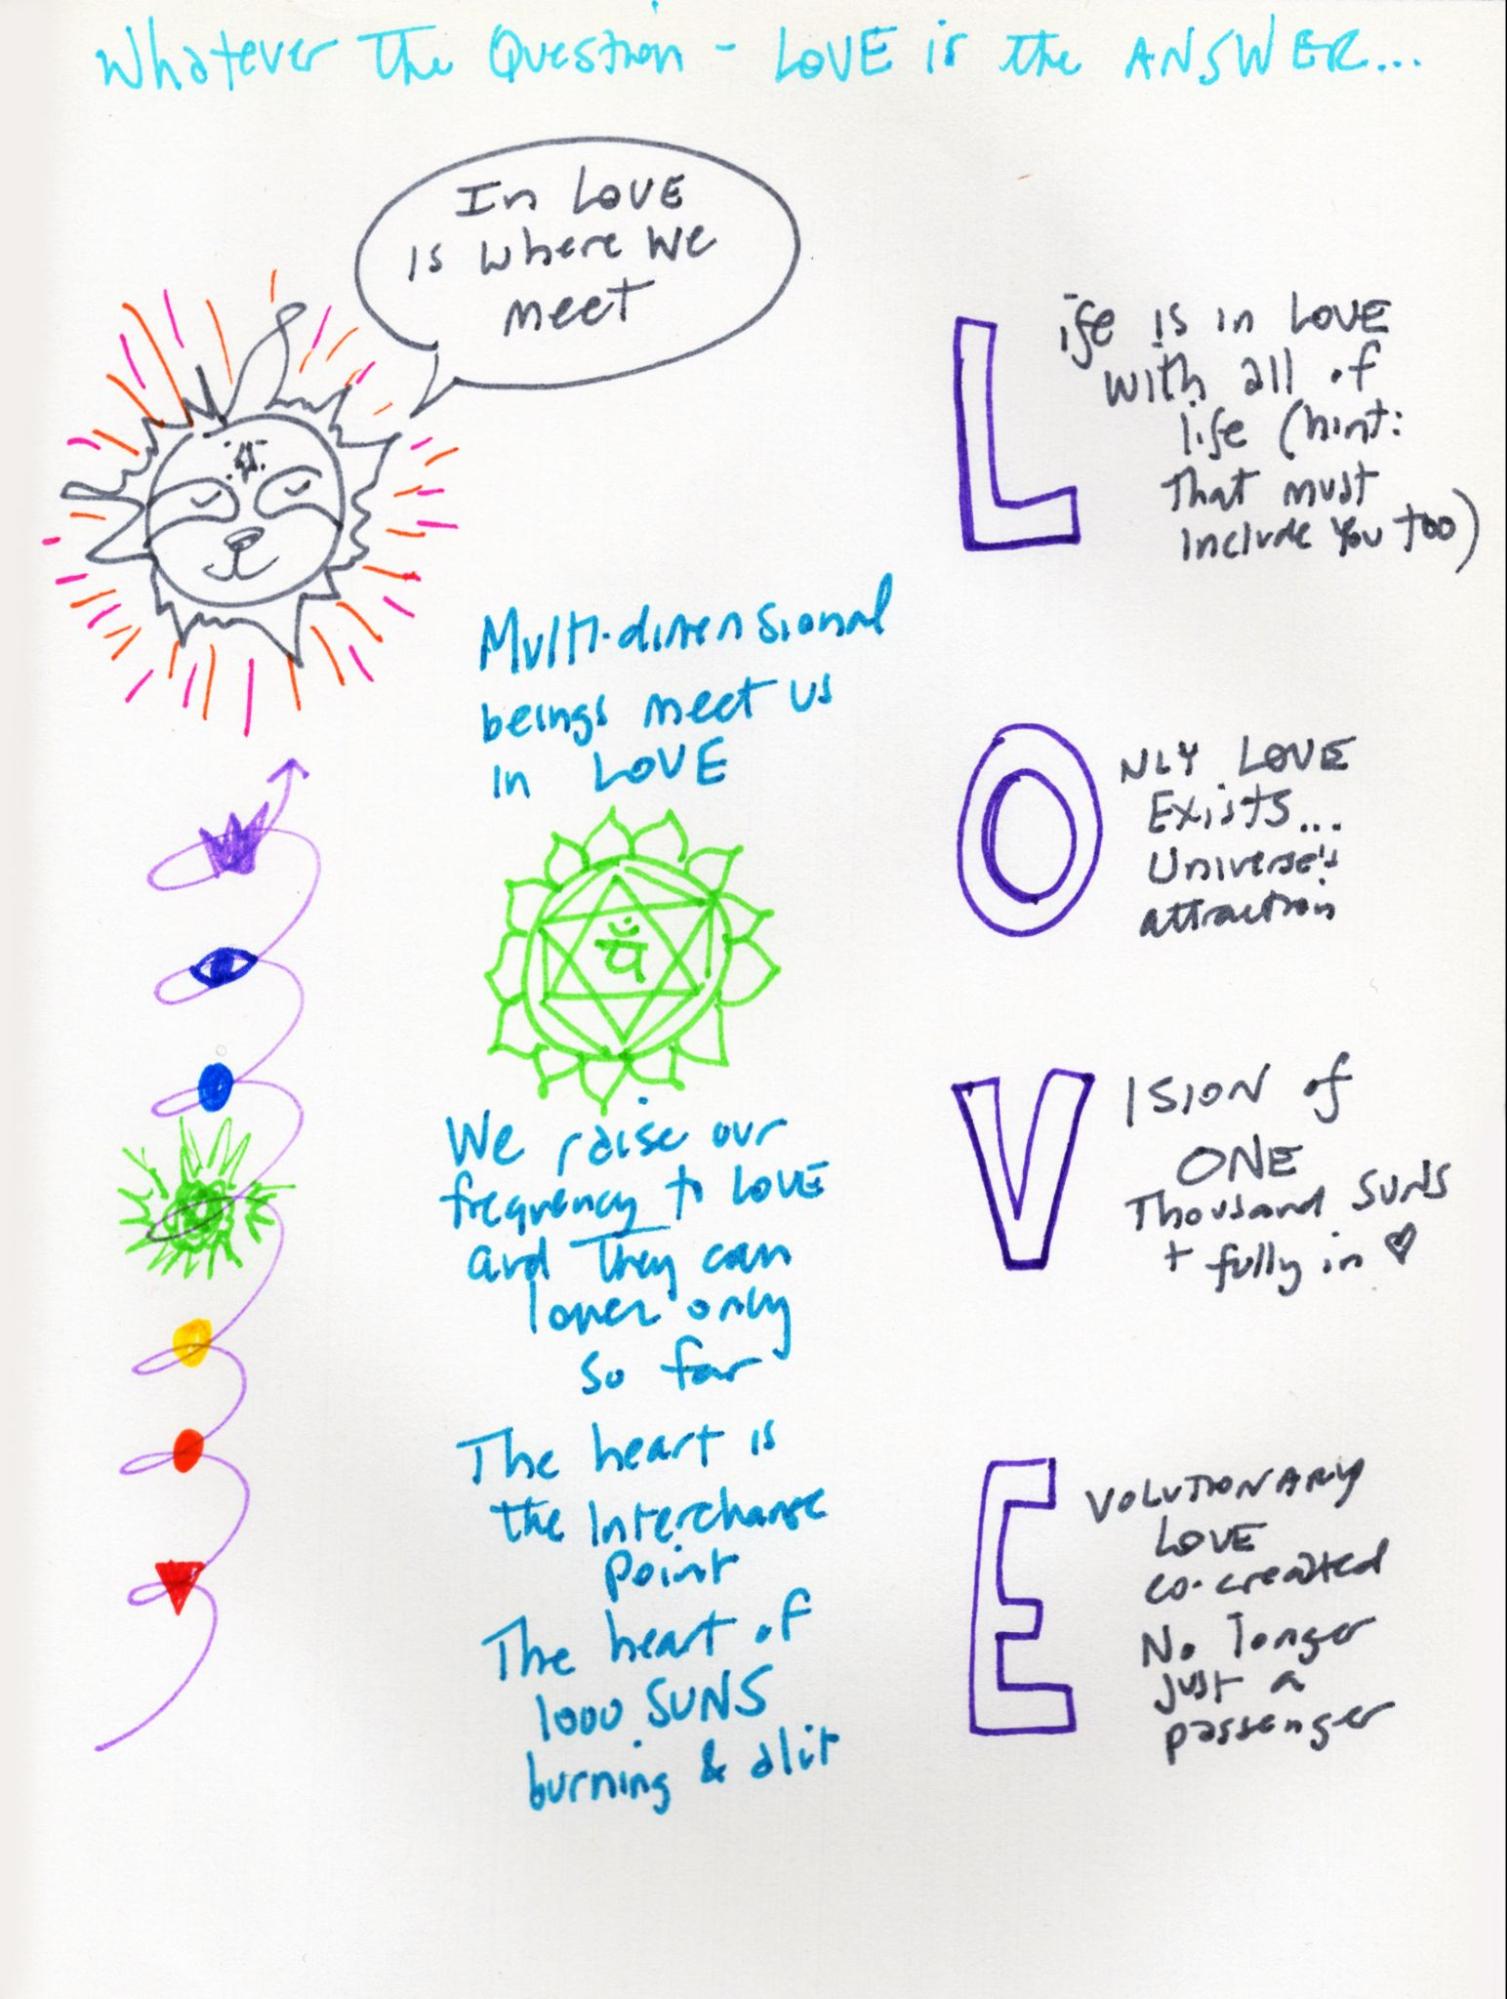 Whatever The Question - LOVE is the ANSWER...
In LOVE
Is where We
meet
Multi-dimensional
beings meet us
In LOVE
यँ
We raise our
frequency to LOVE
and They can
lower only
so far
The heart is
the Interchange
Point
The heart of
1000 SUNS
burning & alit
Life is in LOVE
with all of
life (hint:
That must
Include You too)
ONLY LOVE
Exists...
Universe's
attraction
VISION of
ONE
Thousand SUNS
+ fully in ♡
EVOLUTIONARY
LOVE
co-created
No longer
just a
passenger